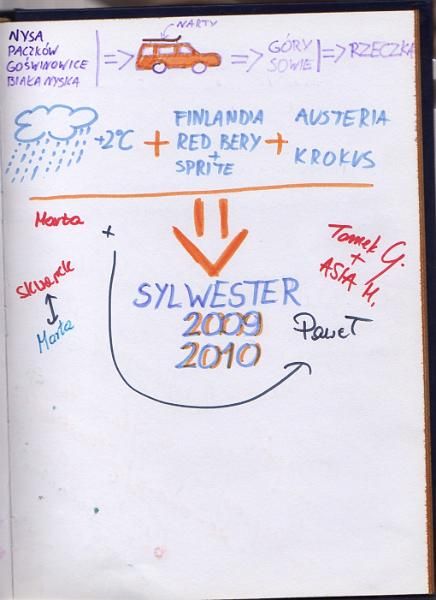 NYSA
PACZKÓW
GOŚWINOWICE
BIAŁA NYSKA
=>
NARTY
=> GÓRY
SOWIE
=> RZECZKA
+2°C + FINLANDIA
RED BERY
+
SPRITE
+ AUSTERIA
KROKUS
Marta
+
Skwarek
Marta
Tomek G.
+
ASIA H.
SYLWESTER
2009
2010
Paweł